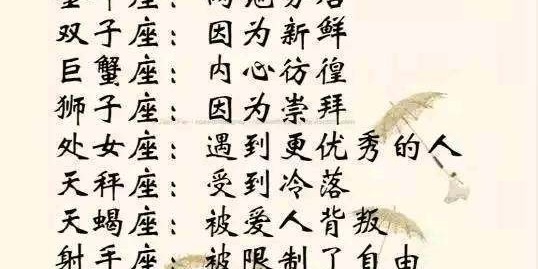 双子座：因为新鲜
巨蟹座：内心彷徨
狮子座：因为崇拜
处女座：遇到更优秀的人
天秤座：受到冷落
天蝎座：被爱人背叛
射手座：被限制了自由